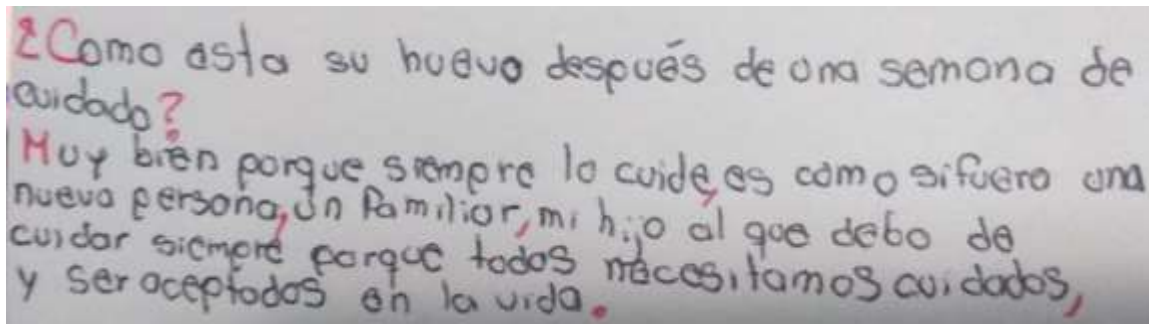 ¿Como esta su huevo después de una semana de
cuidado?
Muy bien porque siempre lo cuide, es como si fuera una
nueva persona, un familiar, mi hijo al que debo de
cuidar siempre porque todos necesitamos cuidados,
y ser aceptados en la vida.